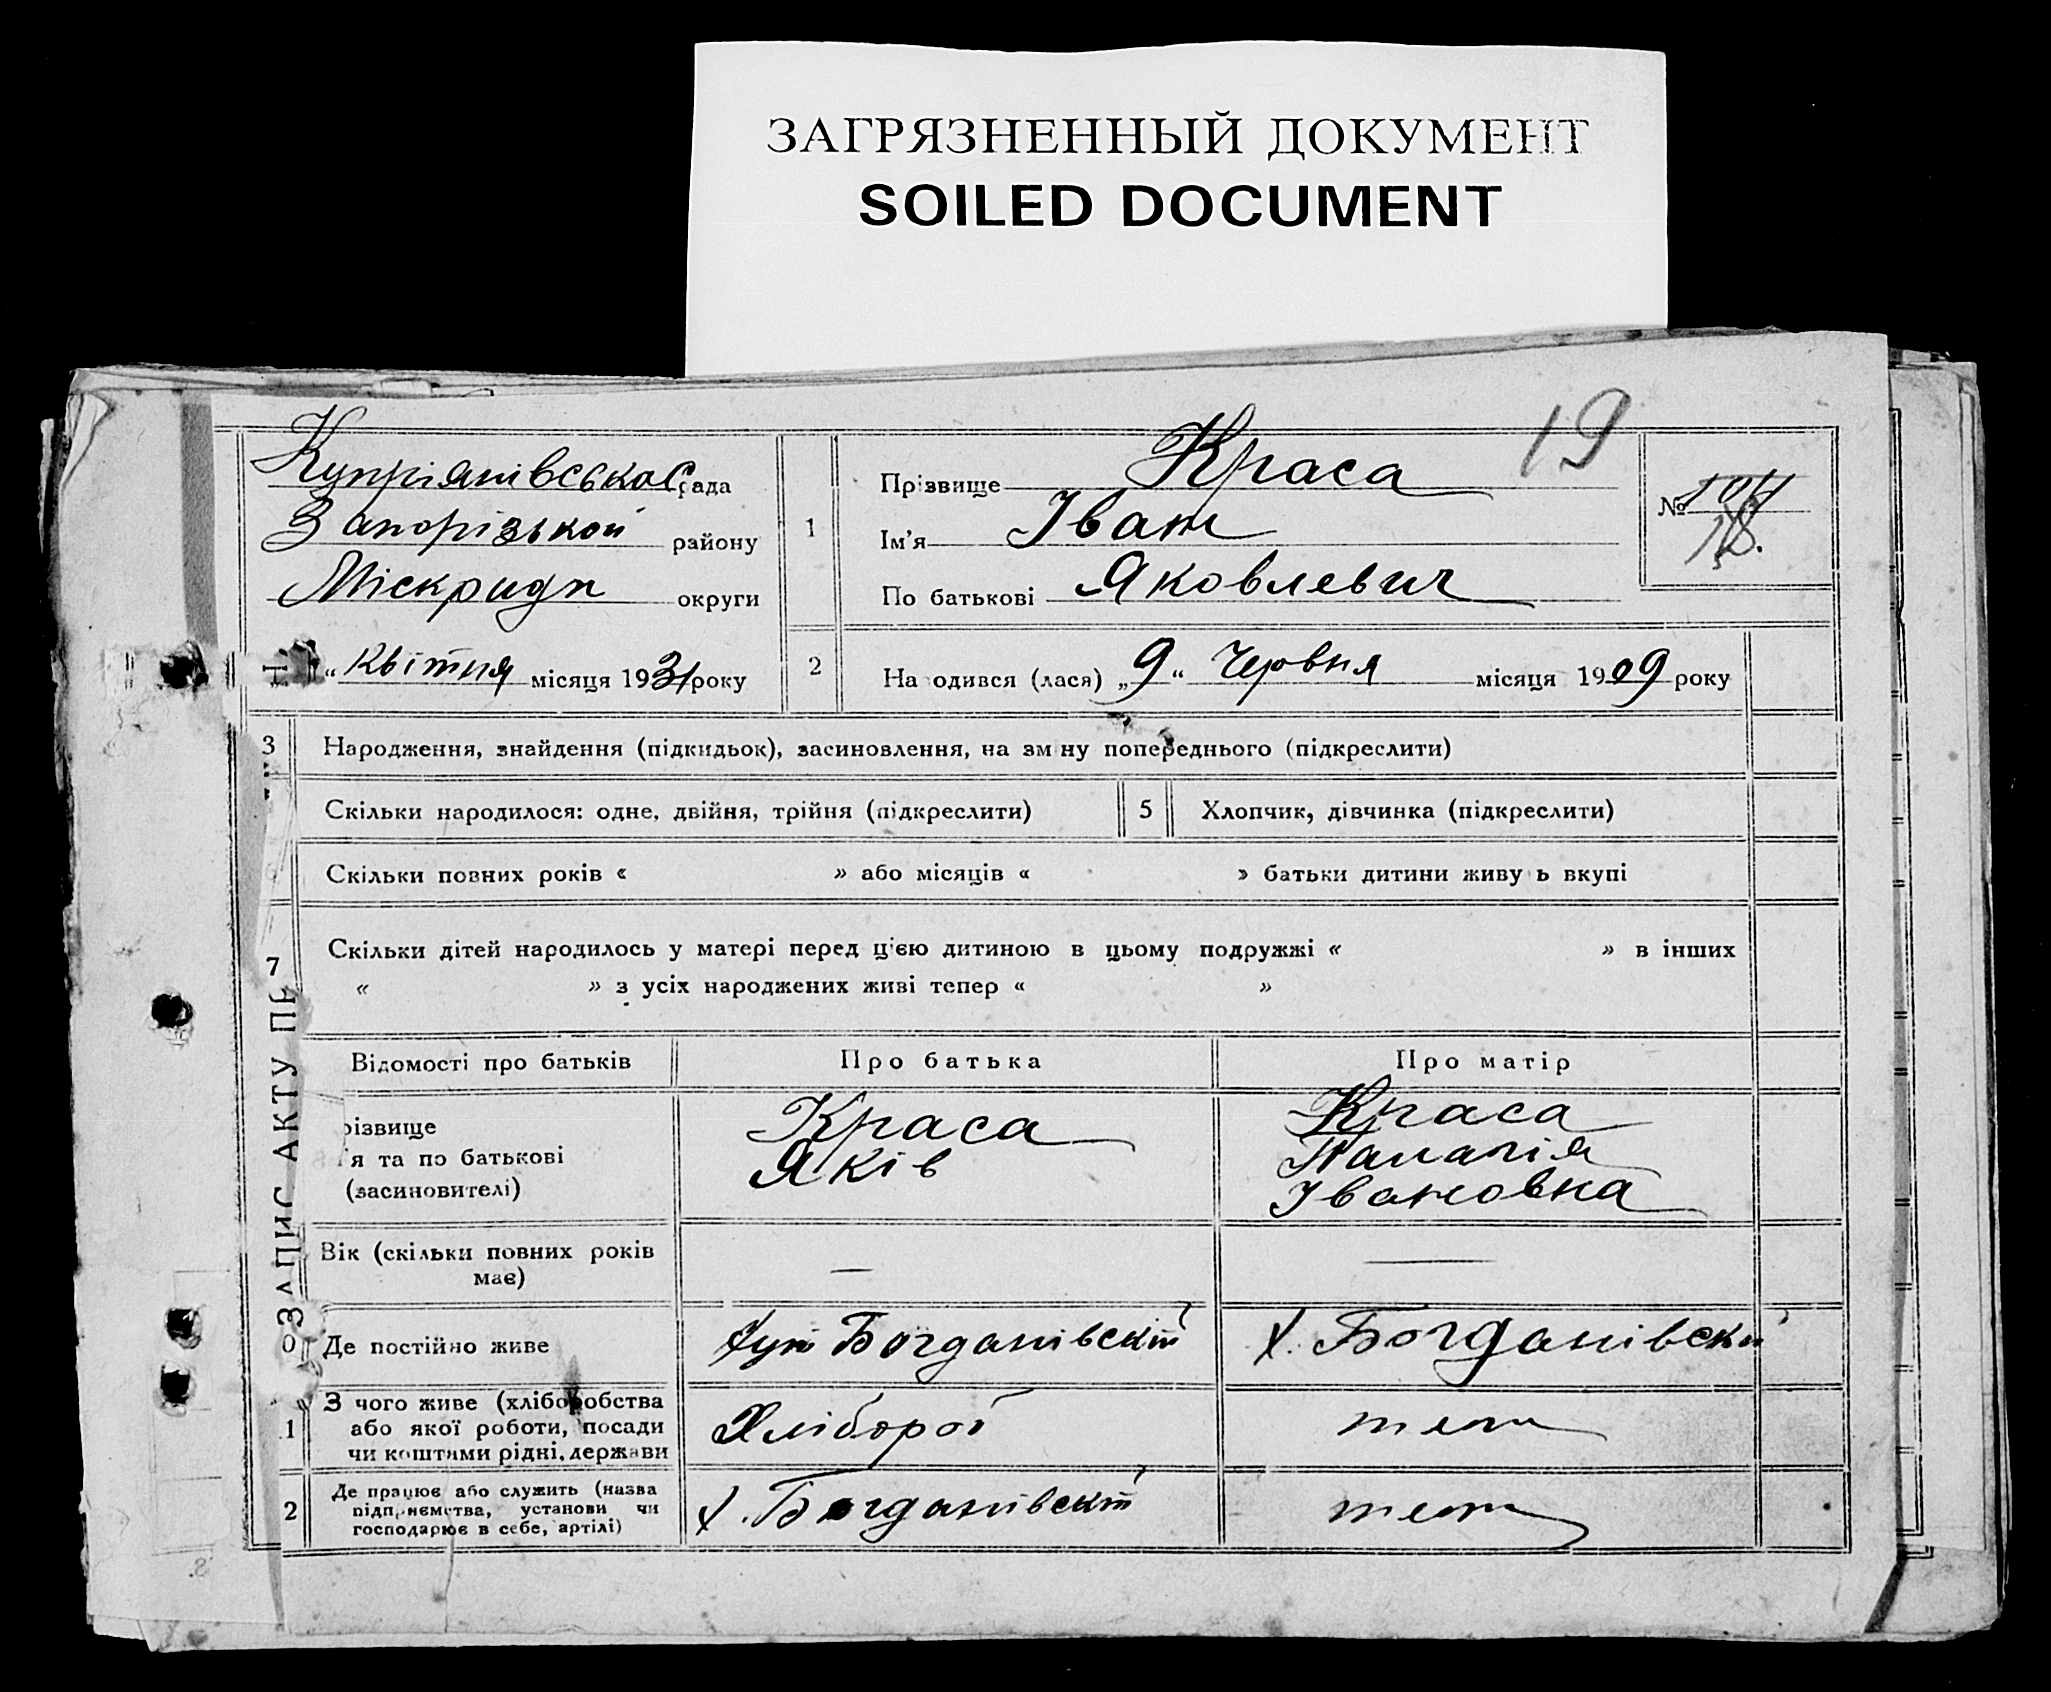 ЗАГРЯЗНЕННЫЙ ДОКУМЕНТ
SOILED DOCUMENT
19
Купріянівської рада
Запорізької району
Міскради округи
„ “ Квітня місяця 1931 року
1
Прізвище Краса
Ім'я Іван
По батькові Яковлевич
№ 104
18.
2
На одився (лася) „9“ Червня місяця 1909 року
3 Народження, знайдення (підкидьок), засиновлення, на зм ну попереднього (підкреслити)
Скільки народилося: одне, двійня, трійня (підкреслити)
5 Хлопчик, дівчинка (підкреслити)
Скільки повних років « » або місяців « » батьки дитини живу ь вкупі
7 Скільки дітей народилось у матері перед цією дитиною в цьому подружжі « » в інших
« » з усіх народжених живі тепер « »
ЗАПИС АКТУ ПР
Відомості про батьків Про батька Про матір
різвище
'я та по батькові
(засиновителі)
Краса
Яків
Краса
Палагія
Івановна
Вік (скільки повних років
має)
— —
0 Де постійно живе Хут Богданівскій х. Богданівский
1 З чого живе (хліборобства
або якої роботи, посади
чи коштами рідні, держави
Хлібороб теж
2 Де працює або служить (назва
підприємства, установи чи
господарює в себе, артілі)
х. Богданівскій теж